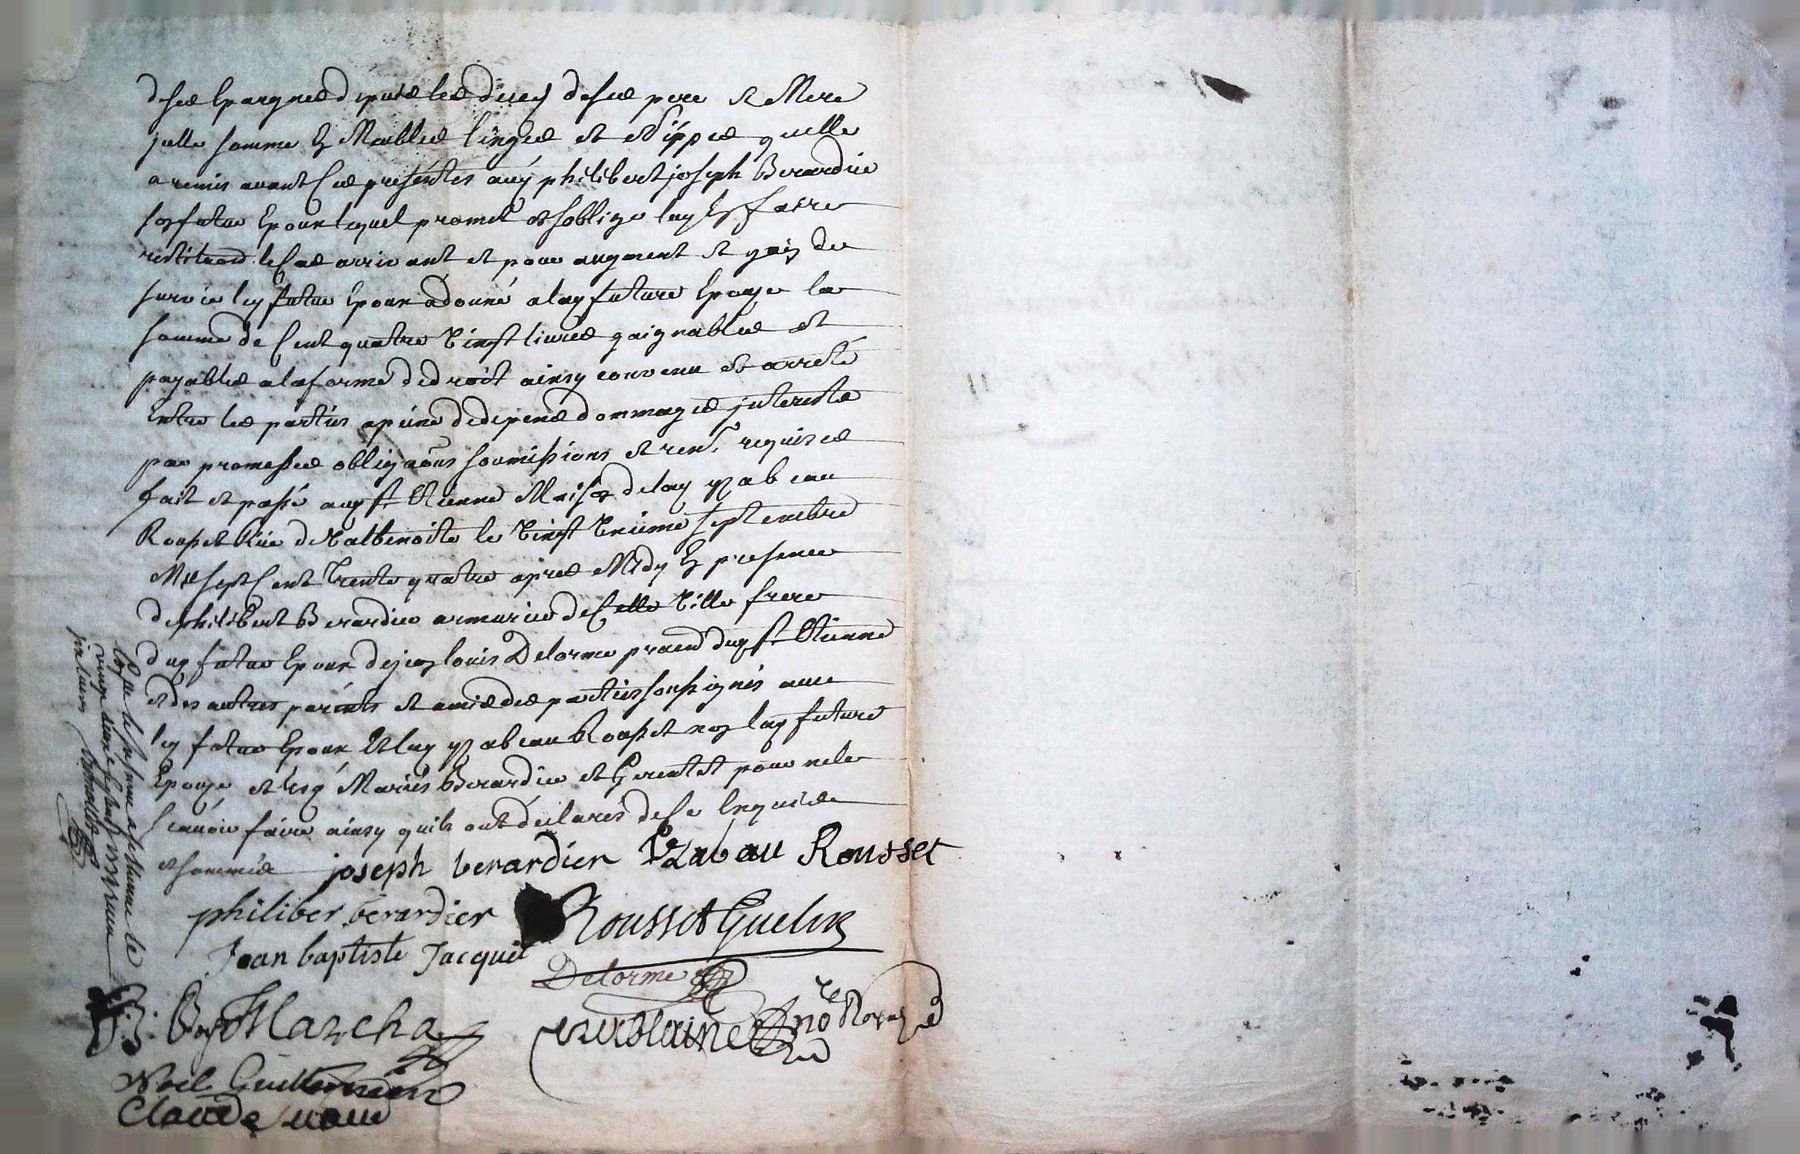 de ses Epargnes depuis les deces de ses pere et Mere
jcelle somme En Meubles linges et Nippes quelle
a remis avant Ces presentes audt philibert joseph Berardier
son futur Epoux lequel promet et soblige luy En faire
restituaon le Cas arrivant et pour augment et gain de
survie led futur Epoux a donné a lad future Epouze la
somme de Cent quatre Vingt livres gaignables et
payables a la forme de droit ainsy convenu et arreté
Entre les parties a peine de depens dommages jnterests
par promesses obligaons soumissions et renons requises
fait et passé aud st Etienne Maison de lad yzabeau
Rousset Rüe de Valbenoite le Vingt septembre
Mil sept Cent trente quatre apres Midy En presence
de philibert Berardier armurier de Cette Ville frere
dud futur Epoux de louis Delorme praticn dud st Etienne
et des autres parents et amis des parties soussignés avec
led futur Epoux Et lad yzabeau Rousset non lad future
Epouze et lesd Mariés Berardier et pour ne le
scavoir faire ainsy quils ont declarés de Ce Enquis
et sommés joseph berardier Yzabau Rousset
philiber berardier Rousset Guelin
Jean baptiste Jacquet
Delorme
Marcha
Noel Guillermen
Claude
Conllé a st etienne le
jnsinuer